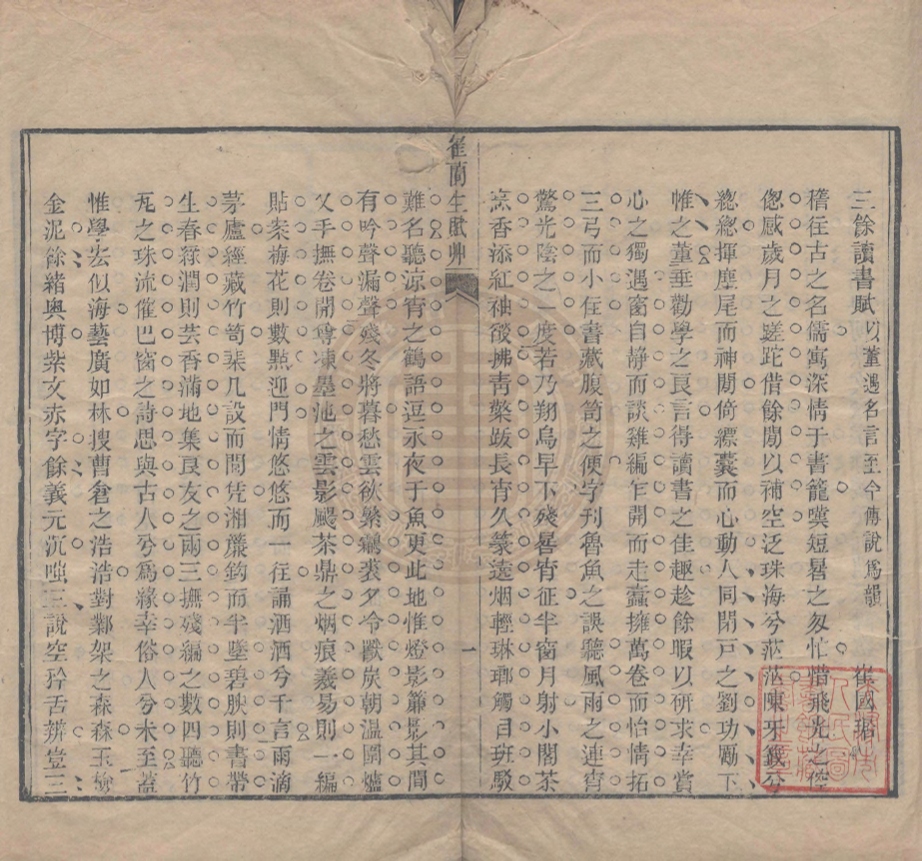 三餘讀書賦 以董遇名言至今傳說爲韻 崔國琚
稽往古之名儒寓深情于書籠嘆短晷之匆忙惜飛光之倥
偬感歲月之蹉跎借餘閒以補空泛珠海兮茫茫陳牙籤兮
總總揮麈尾而神閒倚縹囊而心動人同閉戶之劉功勵下
帷之董垂勸學之良言得讀書之佳趣趁餘暇以研求幸賞
心之獨遇窗自静而談雞編乍開而走蠹擁萬卷而怡情拓
三弓而小住書藏腹笥之便字刊魯魚之誤聽風雨之連宵
驚光陰之一度若乃翔烏早下殘晷宵征半窗月射小閣茶
烹香添紅袖燄拂青檠跋長宵久篆遠烟輕琳瑯觸目班駁
崔蘭生賦艸
一
難名聽涼宵之鶴語逗永夜于魚更此地惟燈影簾影其間
有吟聲漏聲殘冬將暮愁雲欲繁鶴裘夕冷獸炭朝温圍爐
叉手撫卷開尊凍墨池之雲影颺茶鼎之烟痕羲易則一編
貼案梅花則數點迎門情悠悠而一往誦洒洒兮千言雨滴
茅廬經藏竹笥棐几設而閒凭湘簾鈎而半墜碧映則書帶
生春綠潤則芸香滿地集良友之兩三撫殘編之數四聽竹
瓦之珠流催巴窗之詩思與古人兮爲緣幸俗人兮未至蓋
惟學宏似海藝廣如林搜曹倉之浩浩對鄴架之森森玉
金泥餘緒奥博紫文赤字餘義元沉嗤三說空矜舌辨豈三